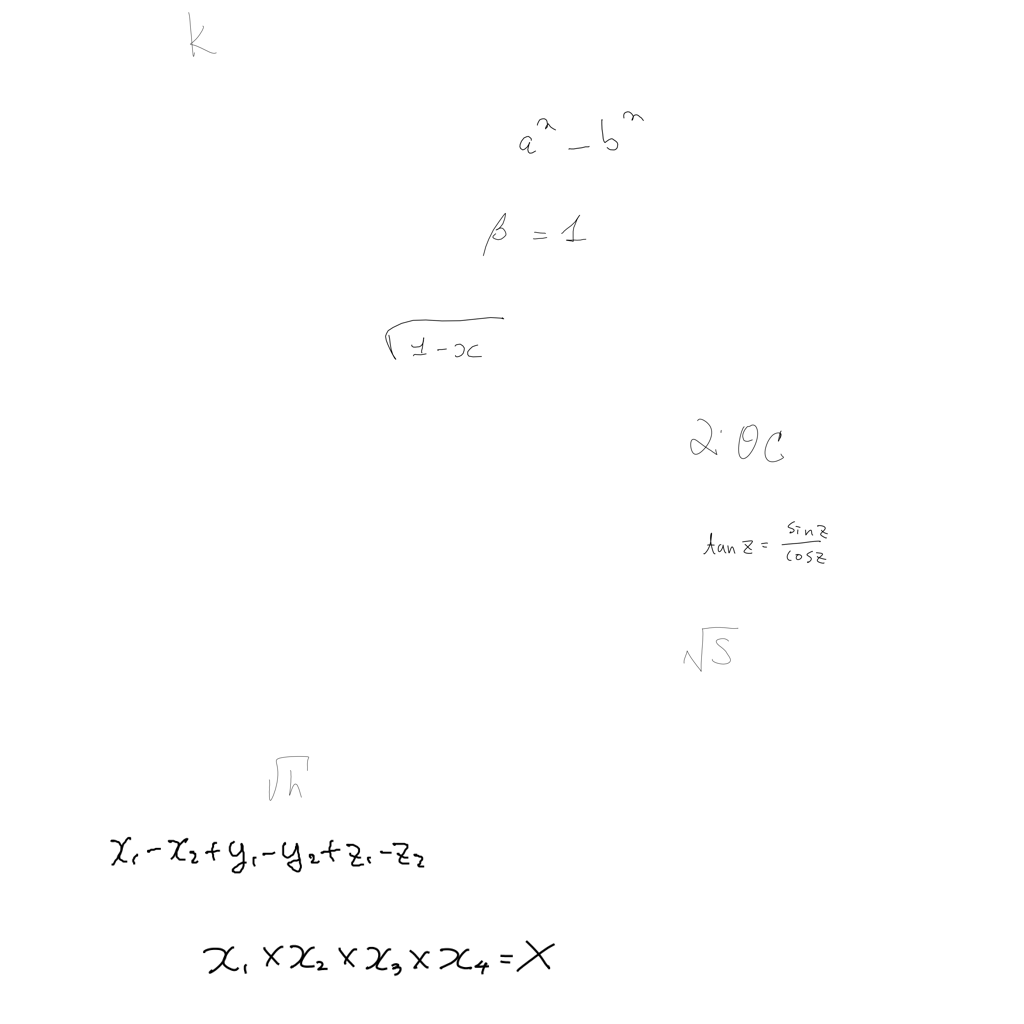 k
aⁿ − bⁿ
β = 1
√(1 − x)
2.θC
tan z = sin z / cos z
√S
√h
x₁ − x₂ + y₁ − y₂ + z₁ − z₂
x₁ × x₂ × x₃ × x₄ = X